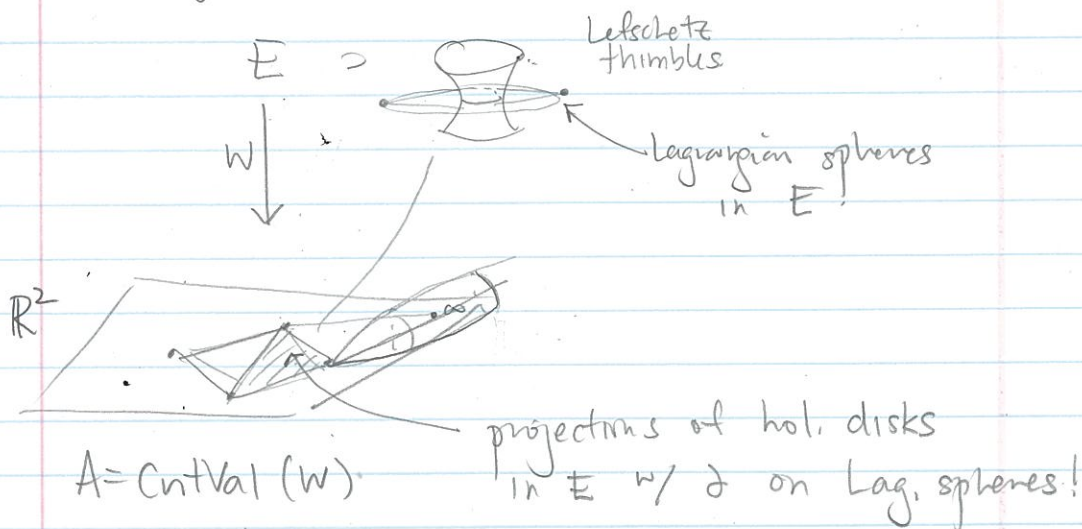 E ⊃
Lefschetz
thimbles
W
Lagrangian spheres
in E!
ℝ²
∞
projections of hol. disks
in E w/ ∂ on Lag. spheres!
A = CrtVal (W)